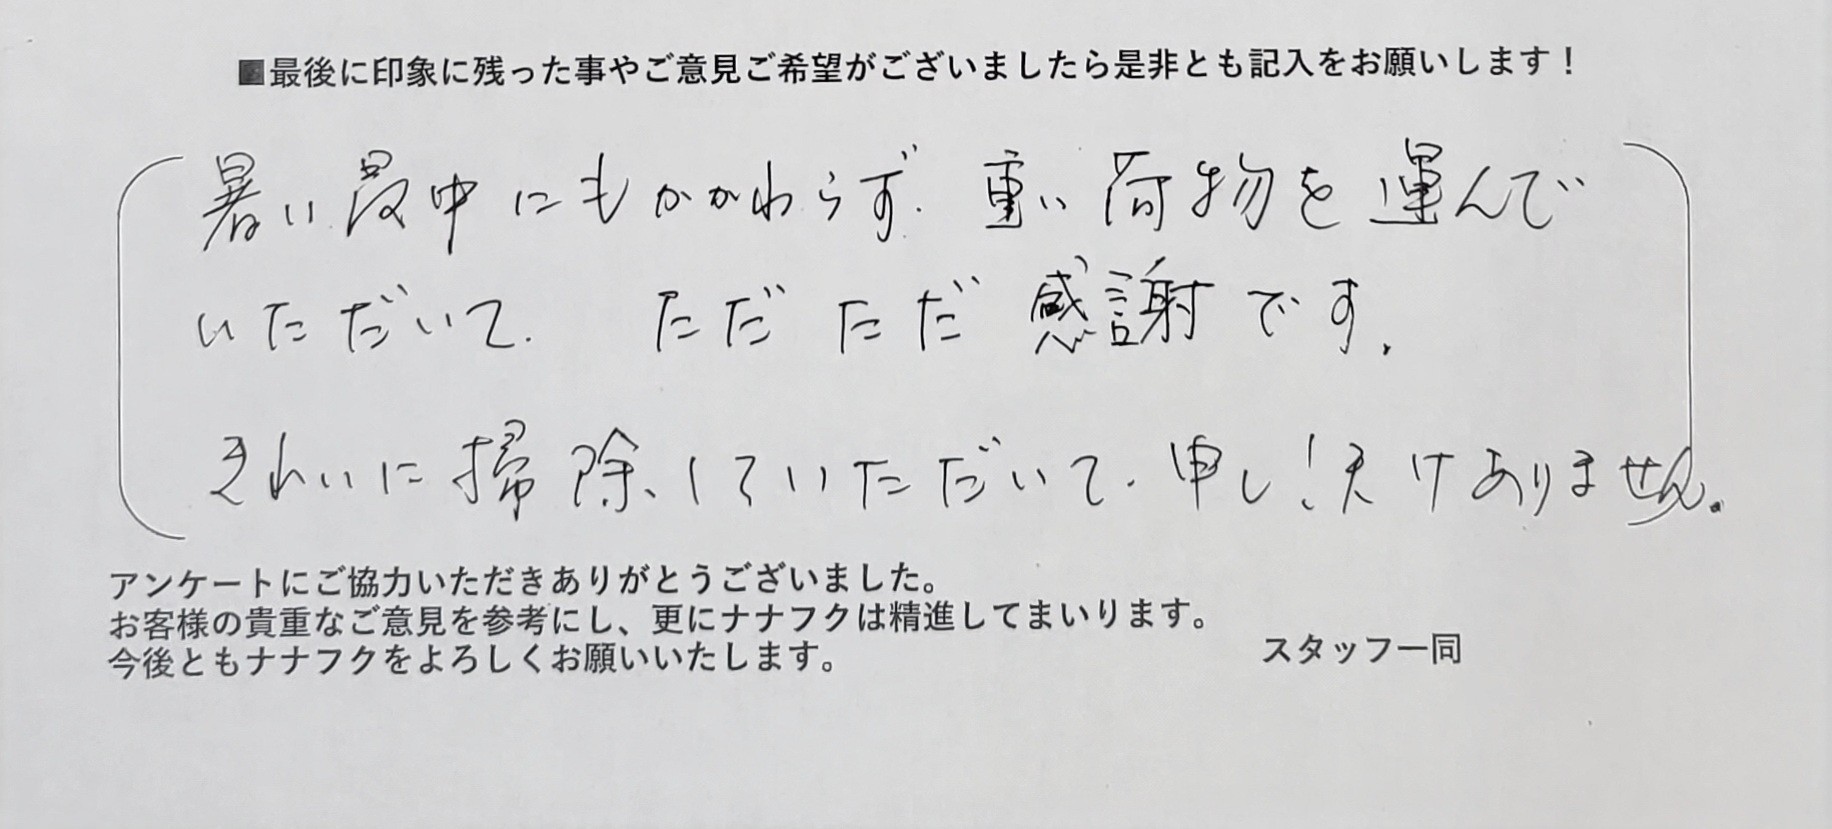 ■最後に印象に残った事やご意見ご希望がございましたら是非とも記入をお願いします！
暑い最中にもかかわらず、重い荷物を運んで
いただいて、ただただ感謝です。
きれいに掃除、していただいて、申し訳けありません。
アンケートにご協力いただきありがとうございました。
お客様の貴重なご意見を参考にし、更にナナフクは精進してまいります。
今後ともナナフクをよろしくお願いいたします。
スタッフ一同